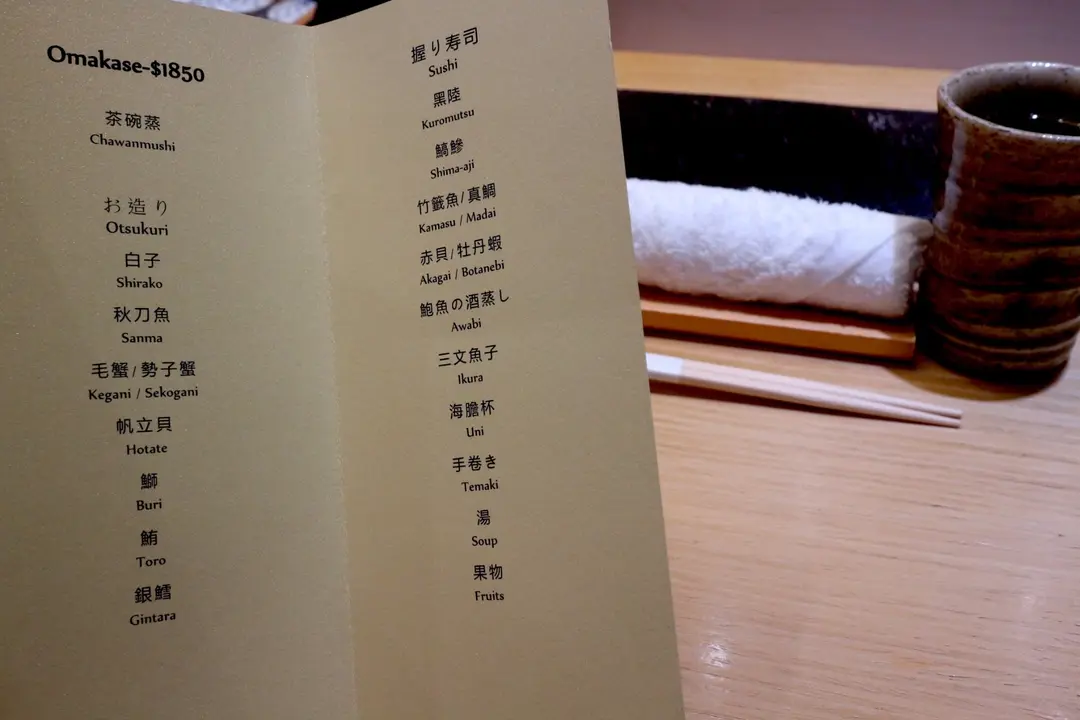 Omakase-$1850
茶碗蒸
Chawanmushi
お造り
Otsukuri
白子
Shirako
秋刀魚
Sanma
毛蟹/勢子蟹
Kegani / Sekogani
帆立貝
Hotate
鰤
Buri
鮪
Toro
銀鱈
Gintara
握り寿司
Sushi
黑陸
Kuromutsu
鰝鰺
Shima-aji
竹籤魚/真鯛
Kamasu / Madai
赤貝/牡丹蝦
Akagai / Botanebi
鮑魚の酒蒸し
Awabi
三文魚子
Ikura
海膽杯
Uni
手卷き
Temaki
湯
Soup
果物
Fruits